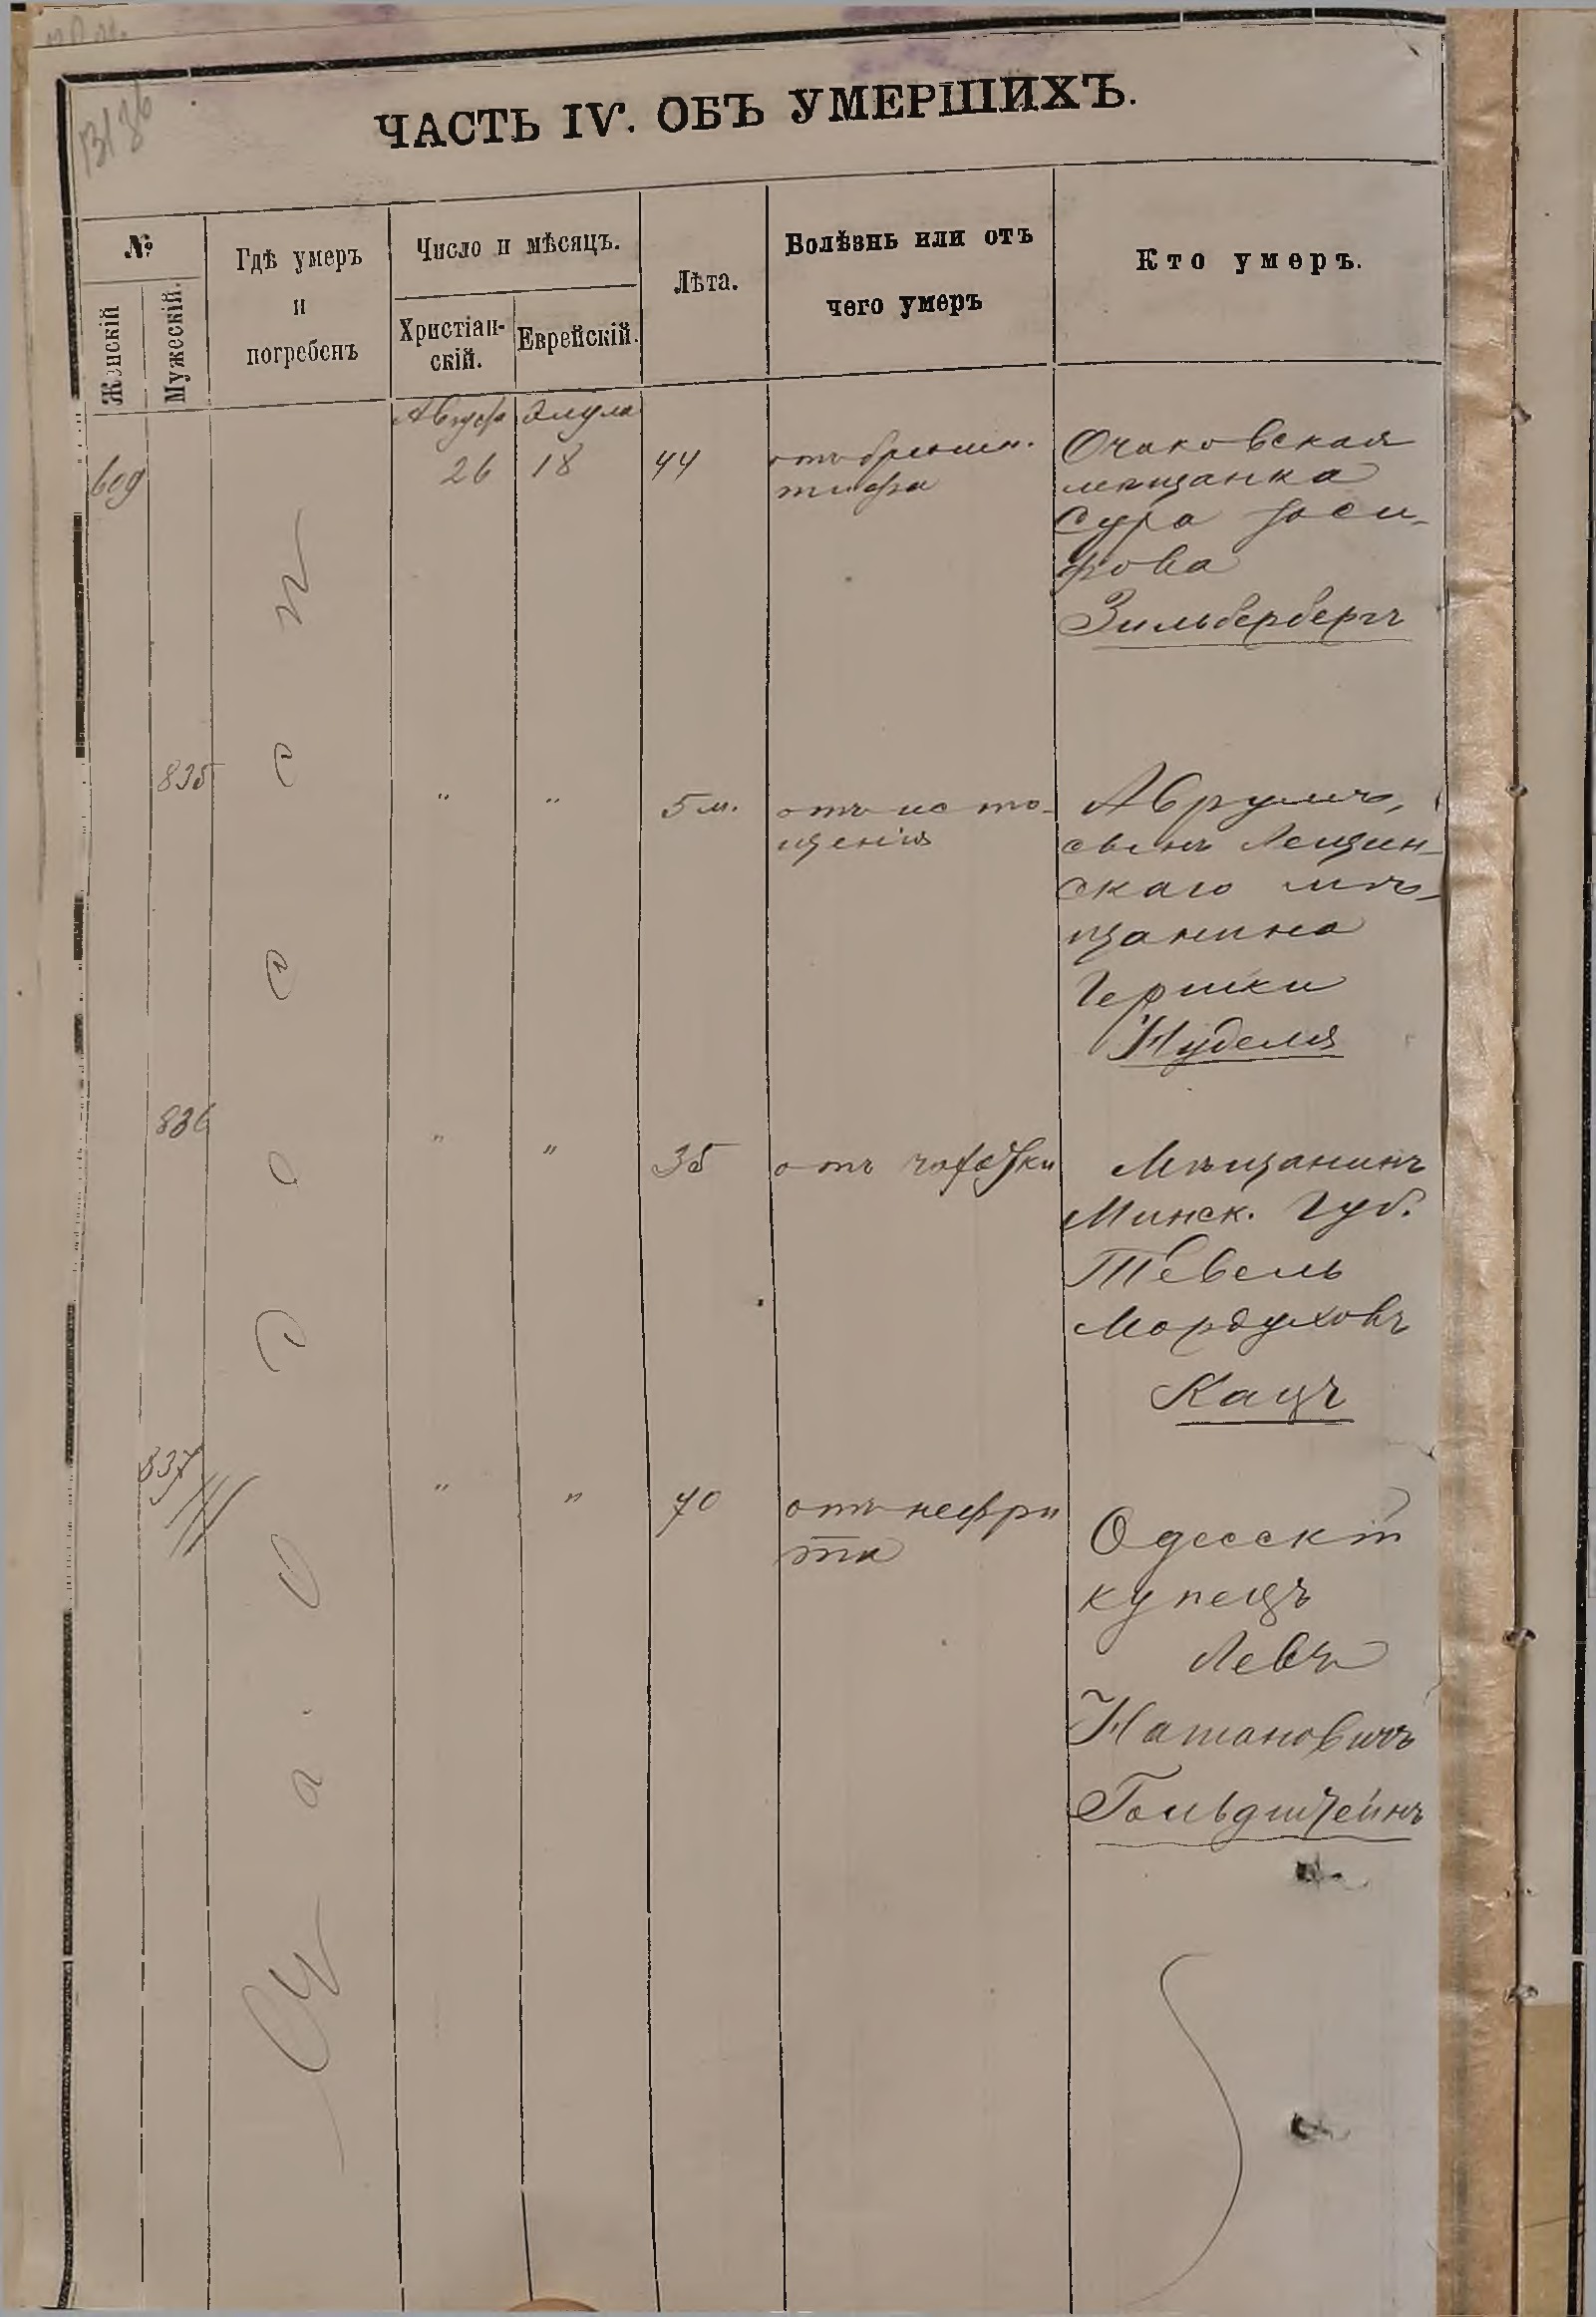 ЧАСТЬ IV. ОБЪ УМЕРШИХЪ.
№
Женскій
Мужескій.
Гдѣ умеръ
и
погребенъ
Число и мѣсяцъ.
Христіан-
скій.
Еврейскій.
Лѣта.
Болѣзнь или отъ
чего умеръ
Кто умеръ.
Августа Элула
609 26 18 44 отъ брюшн. Очаковская
тифа мѣщанка
Сура Іоси-
фова
Зильбербергъ
835 " " 5 м. отъ исто- Аврумъ,
щенія сынъ Лещин-
скаго мѣ-
щанина
Гершки
Нуделя
836 " " 35 отъ чахотки Мѣщанинъ
Минск. Губ.
Тевель
Мордуховъ
Кацъ
837 " " 70 отъ нефри Одесскій
та купецъ
Левъ
Натановичъ
Гольдштейнъ